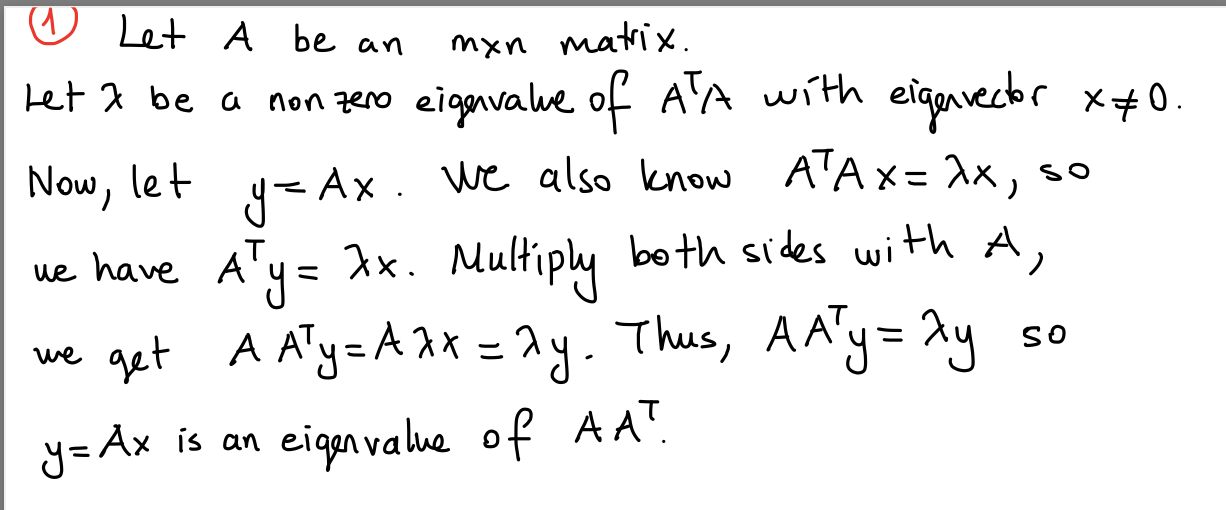 ① Let A be an mxn matrix.
Let λ be a non zero eigenvalue of AᵀA with eigenvector x≠0.
Now, let y=Ax. We also know AᵀAx=λx, so
we have Aᵀy=λx. Multiply both sides with A,
we get AAᵀy=Aλx=λy. Thus, AAᵀy=λy so
y=Ax is an eigenvalue of AAᵀ.